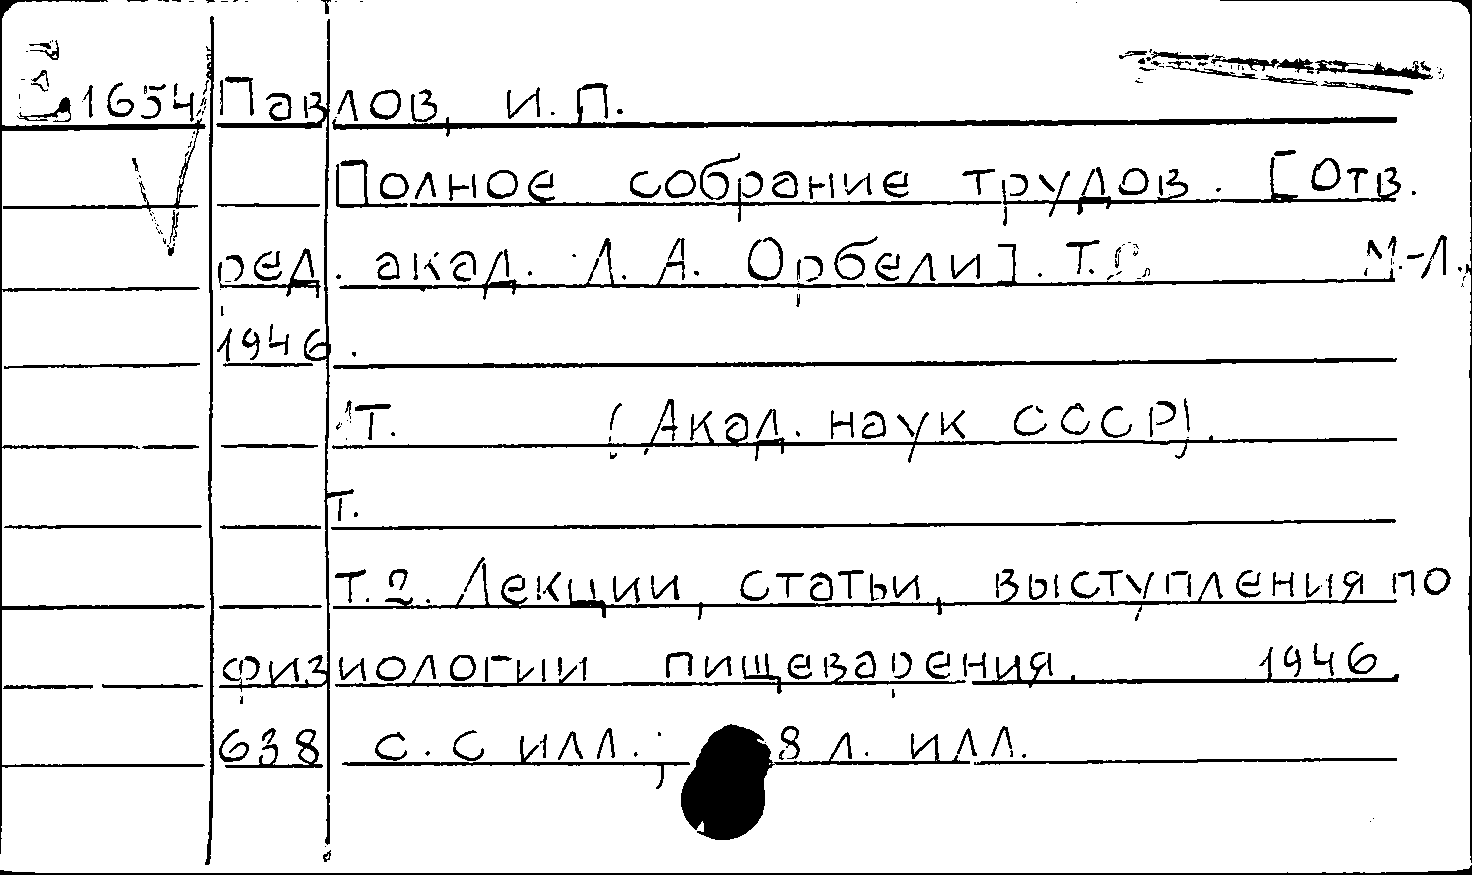 1654 Павлов, И.П.
Полное собрание трудов. [Отв.
ред. акад. Л. А. Орбели]. Т.2 М.-Л.,
1946.
Т. (Акад. наук СССР).
Т.
Т.2. Лекции, статьи, выступления по
физиологии пищеварения. 1946.
638 с. с илл.; 8 л. илл.